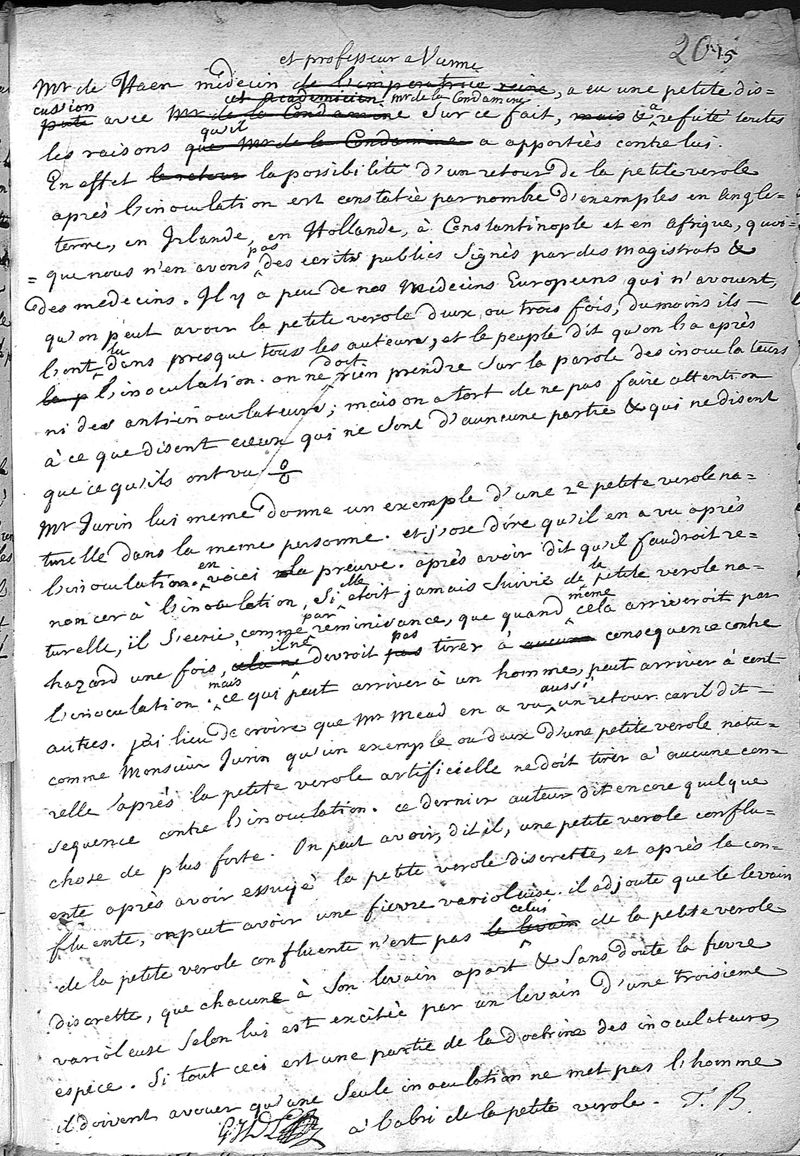 20 15
et professeur a Vienne
Mr. de Haen médecin de L'imperatrice reine, a eu une petite dis=
cussion et Academicien Mr de la Condamine
avec Mr de la Condamine sur ce fait, mais & a refuté toutes
qu'il
les raisons que Mr de la Condamine a apportiés contre lui.
En effet le retour la possibilité d'un retour de la petite verole
après L'inoculation est constatiée par nombre d'exemples en Angle=
terre, en Irlande, en Hollande, à Constantinople et en afrique, quoi=
= que nous n'en avons pas des ecrits publics signés par des magistrats &
des medecins. Il y a peu de nos Medecins Europeens qui n'avouent,
qu'on peut avoir la petite verole deux, ou trois fois, du moins ils
L'ont lu dans presque tous les auteurs, et le peuple dit qu'on l'a après
L'inoculation. on ne doit rien prendre sur la parole des inoculateurs
ni des antiinoculateurs; mais on a tort de ne pas faire attention
à ce que disent ceux qui ne sont d'aucune partie & qui ne disent
que ce qu'ils ont vu
Mr Jurin lui meme donne un exemple d'une 2e petite verole na=
turelle dans la meme personne. et j'ose dire qu'il en a vu après
L'inoculation. en voici la preuve. après avoir dit qu'il faudroit re=
noncer à L'inoculation, si elle etoit jamais suivie de la petite verole na=
turelle, il s'ecrie, comme par reminiscence, que quand même cela arriveroit par
hazard une fois, cela ne il ne devroit pas pas tirer à aucune consequence contre
L'inoculation. mais ce qui peut arriver à un homme, peut arriver à cent
autres. j'ai lieu de croire que Mr Mead en a vu aussi un retour car il dit=
comme Monsieur Jurin qu'un exemple ou deux d'une petite verole natu=
relle après la petite verole artificielle ne doit tirer à aucune con=
sequence contre L'inoculation. ce dernier auteur dit encore quelque
chose de plus forte. On peut avoir, dit il, une petite verole conflu=
ente après avoir essuyé la petite verole discrette, et après la con=
fluente, on peut avoir une fievre varioleuse. il adjoute que le levain
de la petite verole confluente n'est pas le levain celui de la petite verole
discrette, que chacune à son levain apart & sans doute la fievre
varioleuse selon lui est excitée par un levain d'une troisieme
espece. Si tout ceci est une partie de la doctrine des inoculateurs,
il doivent avouer qu'une seule inoculation ne met pas L'homme
à L'abri de la petite verole. T. B.